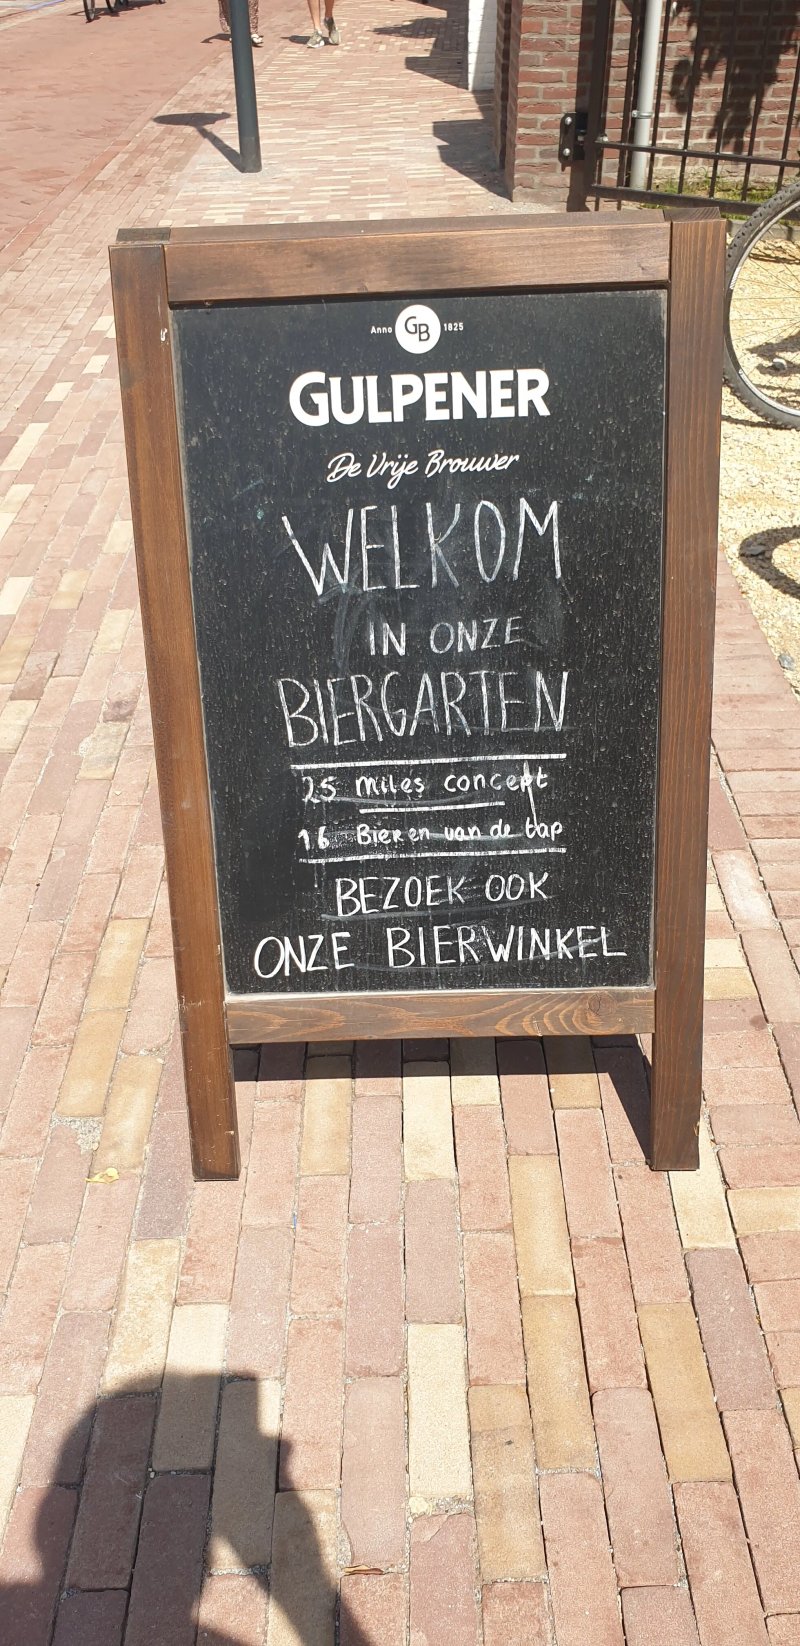 Anno GB 1825
GULPENER
De Vrije Brouwer
WELKOM
IN ONZE
BIERGARTEN
25 miles concept
16 Bieren van de tap
BEZOEK OOK
ONZE BIERWINKEL